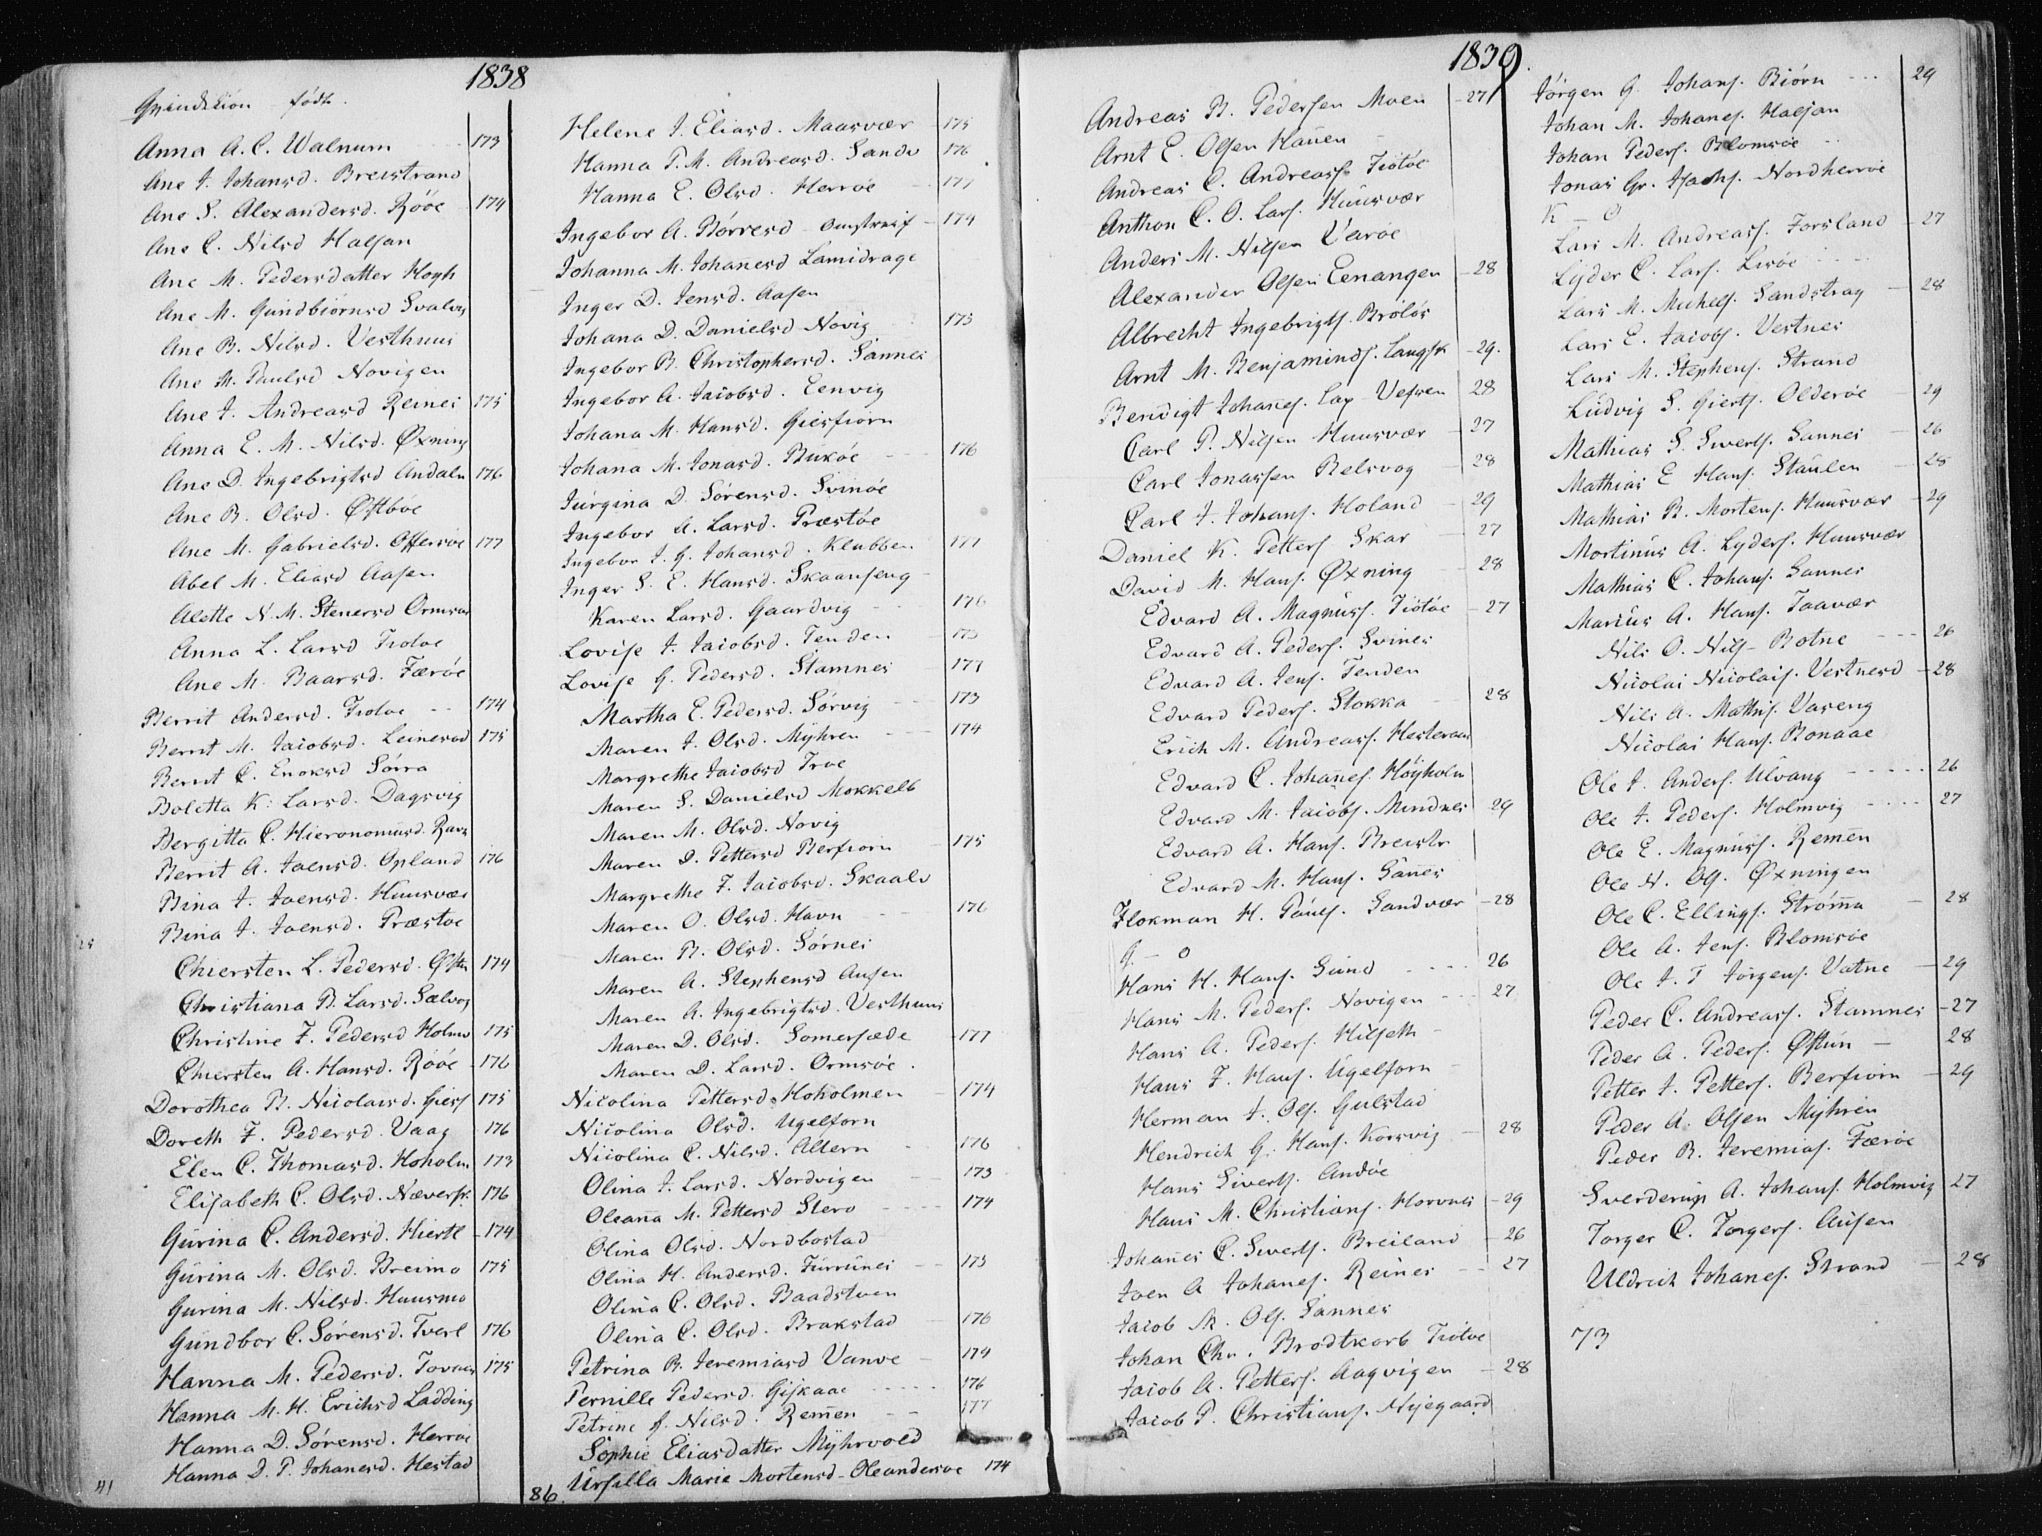 1838
Qvindekiön födte.
Anna A. C. Walnum 173
Ane J. Johansd. Breistrand
Ane S. Alexandersd. Røöe 174
Ane C. Nilsd Halsan
Ane M. Pedersdatter Høgh
Ane M. Gundbiørnsd Svalvg
Ane B. Nilsd. Vesthuus
Ane M. Paulsd Novigen
Ane J. Andreasd Reines 175
Anna E. M. Nilsd. Øxning
Ane D. Ingebrigtsd Andaln 176
Ane B. Olsd. Østbøe
Ane M. Gabrielsd. Offersøe 177
Abel M. Eliasd Aasen
Alette N. M. Stenersd Ormsøe
Anna L. Larsd Tiotøe
Ane M. Baarsd. Færøe
Berrit Andersd. Tiotøe 174
Berrit M. Jacobsd. Leinesod 175
Berrit C. Enoksd Sørra
Boletta K. Larsd. Dagsvig
Bergitta C. Hieronomusd. Ravn
Berrit A. Joensd. Opland 176
Bina J. Joensd. Huusvær
Bina J. Joensd. Præstøe
Chiersten L. Pedersd. Østn 174
Christiana B. Larsd. Sælvog
Christine F. Pedersd Holmv 175
Chiersten A. Hansd. Røöe 176
Dorothea B. Nicolaisd. Giesf 175
Doreth F. Pedersd. Vaag 176
Elen C. Thomasd. Hoholm 173
Elisabeth C. Olsd. Næverfr. 176
Gurina C. Andersd. Hiertl 174
Gurina M. Olsd. Breimo 175
Gurina M. Nilsd. Huusmo
Gundbor C. Sørensd. Tverl 176
Hanna M. Pedersd. Tovaas 175
Hanna M. H. Erichsd Ladding
Hanna D. Sørensd. Herrøe
Hanna D. P. Johanesd. Hestad
41
Helene J. Eliasd. Maasvær 175
Hanna P. M. Andreasd. Sandv 176
Hanna E. Olsd. Herrøe 177
Ingebor A. Børresd - Omstreif 174
Johanna M. Johanesd Lamidrage
Inger D. Jensd. Aasen
Johana D. Danielsd Novig 175
Ingebor B. Christophersd. Sannes
Ingebor A. Jacobsd. Eenvig
Johana M. Hansd. Giesfiorn
Johana M. Jonasd. Buxøe 176
Jürgina D. Sørensd. Svinøe
Ingebor A. Larsd. Præstøe
Ingebor J. G. Johansd. Klubben 177
Inger S. E. Hansd. Skaanseng
Karen Larsd. Gaardvig 176
Lovise J. Jacobsd. Tenden 173
Lovise G. Pedersd. Stamnes 177
Martha E. Pedersd. Sørvig 173
Maren J. Olsd. Myhren 174
Margrethe Jacobsd Troe
Maren S. Danielsd Mokkelb
Maren M. Olsd. Novig
Maren D. Pettersd Berfiorn 175
Margrethe F. Jacobsd. Skaalv
Maren O. Olsd. Havn 176
Maren B. Olsd. Sørnes
Maren A. Stephensd Ausen
Maren A. Ingebrigtsd. Vesthuus
Maren D. Olsd. Somersæde 177
Maren D. Larsd. Ormsøe.
Nicolina Pettersd. Hoholmen 174
Nicolina Olsd. Ugelforn
Nicolina C. Nilsd. Altern 176
Olina J. Larsd. Nordvigen 173
Oleana M. Pettersd Stero 174
Olina Olsd. Nordbostad
Olina H. Andersd. Furrunes 175
Olina C. Olsd. Baadstuen
Olina C. Olsd. Brakstad 176
Petrina B. Jeremiasd Vanve 174
Pernille Pedersd. Gjskaae 176
Petrine J. Nilsd. Remen 177
Sophie Eliasdatter Myhrvold
Ursilla Marie Mortensd - Oleandersøe 174
86.
1839.
Andreas B. Pedersen Moen 27
Arnt E. Olsen Hauen
Andreas C. Andreass. Tiotøe
Anthon C. O. Lars. Huusvær
Anders M. Nilsen Værøe
Alexander Olsen Eenangen 28
Albrecht Ingebrigts. Brøløs
Arnt M. Benjaminds. Langsk 29.
Bendigt Johanes. Lap - Vefsen 28
Carl P. Nilsen Huusvær 27
Carl Jonassen Belsvog 28
Carl J. Johans. Holand 29
Daniel K. Petters Skar 27
David M. Hans. Øxning 28
Edvard A. Magnuss. Tiotøe 27
Edvard A. Peders. Svines
Edvard A. Jens. Tenden
Edvard Peders. Stokka 28
Erich M. Andreass. Hesteraas
Edvard C. Johanes. Høyholm
Edvard M. Jacobs. Mindnes 29
Edvard A. Hans. Breistr
Edvard M. Hans. Sannes
Flokman H. Pauls. Sandvær 28
G. - 0
Hans H. Hans. Sund 26
Hans M. Peders. Novigen 27
Hans A. Peders. Hilseth
Hans F. Hans. Ugelforn
Herman J. Ols. Gulstad
Hendrich G. Hans. Korsvig 28
Hans Siverts. Andøe
Hans M. Christians. Horvnes 29
Johanes C. Siverts. Breiland 26
Joen A Johanes. Reines 27
Jacob M. Ols. Sannes
Johan Chr. Brodtkorb Tiotøe
Jacob A. Petters. Aagvigen 28
Jacob P. Christians. Myegaard
Jørgen G. Johans. Biørn 29
Johan M. Johanes. Halsan
Johan Peders. Blomsøe
Jonas Gr. Isachs. Nordherrøe
K - 0
Lars M. Andreass. Forsland 27
Lyder C. Lars. Lisøe
Lars M. Michels. Sandstrag 28
Lars E. Jacobs. Vestnes
Lars M. Stephens. Strand
Ludvig S. Gierts. Olderøe 29
Mathias S. Siverts. Sannes 26
Mathias E Hans. Staulen 28
Mathias B. Mortens. Huusvær 29
Mortinus A. Lyders. Huusvær
Mathias C. Johans. Sannes
Marius A. Hans. Taavær
Nils O. Nils. Botne 26
Nicolai Nicolais. Vestnesd 28
Nils A. Mathis. Vaseng
Nicolai Hans. Bonaae
Ole J. Anders. Ulvang 26
Ole J. Peders. Holmvig 27
Ole E. Magnuss. Remen
Ole N. Ols. Øxningen
Ole C. Ellings. Strømma 28
Ole A. Jens. Blomsøe
Ole J. T Jørgens. Vatne 29
Peder C. Andreass. Stamnes 27
Peder A. Peders. Østun 28
Petter J. Petters. Berfiorn 29
Peder A. Olsen Myhren
Peder B. Jeremias. Færøe
Sverderup A. Johans. Holmvig 27
Torger C. Torgers. Ausen
Uldrich Johanes. Strand 28
73